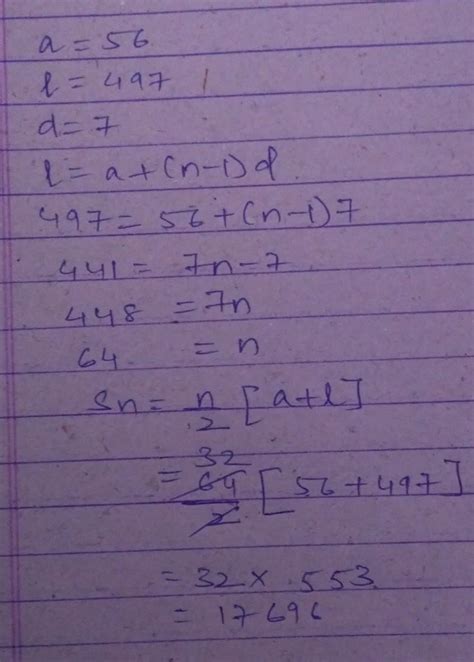 a = 56
l = 497
d = 7
l = a + (n-1) d
497 = 56 + (n-1) 7
441 = 7n - 7
448 = 7n
64 = n
Sn = n/2 [a+l]
32
= 64/2 [56 + 497]
= 32 × 553
= 17696